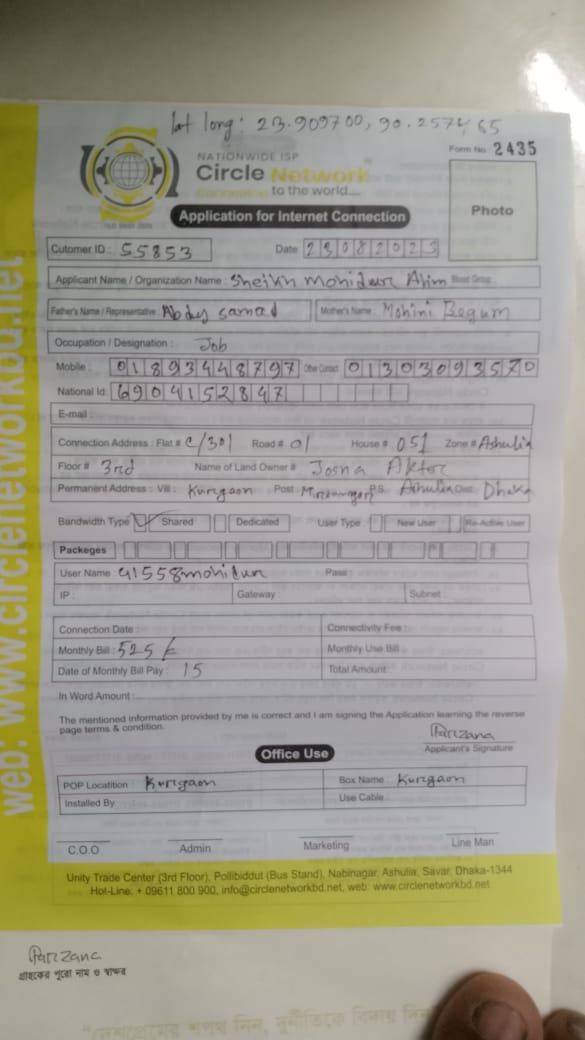 lat long: 23.909700, 90.257465
Form No. 2435
NATIONWIDE ISP
Circle Network
Connection to the world....
ISO 9001:2008
Photo
Application for Internet Connection
Cutomer ID : 55853 Date 23082023
Applicant Name / Organization Name : Sheikh Mohidur Blood Group :
Father's Name / Representative : Abdus Samad Mother's Name : Mohini Begum
Occupation / Designation : Job
Mobile : 01893448797 Other Contact : 01303093570
National Id: 6904152847
E-mail :
Connection Address : Flat # C/301 Road # 01 House # 051 Zone # Ashulia
Floor # 3rd Name of Land Owner # Josna Akter
Permanent Address : Vill : Kurgaon Post P.S. Ashulia Dist: Dhaka
Bandwidth Type Shared Dedicated User Type : New User Re-Active User
Packeges
User Name : 41558mohidur Pass :
IP : Gateway : Subnet :
Connection Date : Connectivity Fee :
Monthly Bill : 525 Monthly Use Bill :
Date of Monthly Bill Pay : 15 Total Amount :
In Word Amount :
The mentioned information provided by me is correct and I am signing the Application learning the reverse
page terms & condition.
Farzana
Applicant's Signature
Office Use
POP Locatition : Kurgaon Box Name : Kurgaon
Installed By Use Cable :
C.O.O Admin Marketing Line Man
Unity Trade Center (3rd Floor), Pollibiddut (Bus Stand), Nabinagar, Ashulia, Savar, Dhaka-1344
Hot-Line: + 09611 800 900, info@circlenetworkbd.net, web: www.circlenetworkbd.net
web: www.circlenetworkbd.net
Farzana
গ্রাহকের পুরো নাম ও স্বাক্ষর
"দেশপ্রেমের শপথ নিন, দুর্নীতিকে বিদায় দিন